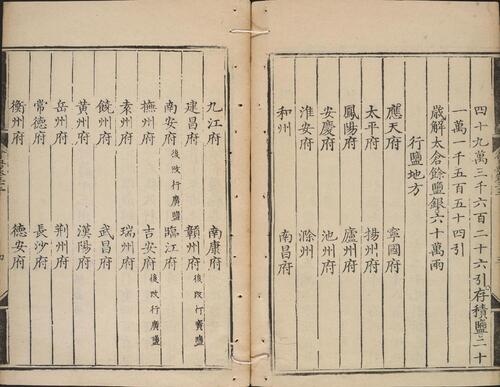 四十九萬三千六百二十六引存積鹽二十
一萬一千五百五十四引
歲解太倉餘鹽銀六十萬兩
行鹽地方
應天府 寧國府
太平府 揚州府
鳳陽府 廬州府
安慶府 池州府
淮安府 滁州
和州 南昌府
九江府 南康府
建昌府 贛州府後改行廣鹽
南安府後改行廣鹽 臨江府
撫州府 吉安府後改行廣鹽
袁州府 瑞州府
饒州府 武昌府
黃州府 漢陽府
岳州府 荊州府
常德府 長沙府
衡州府 德安府